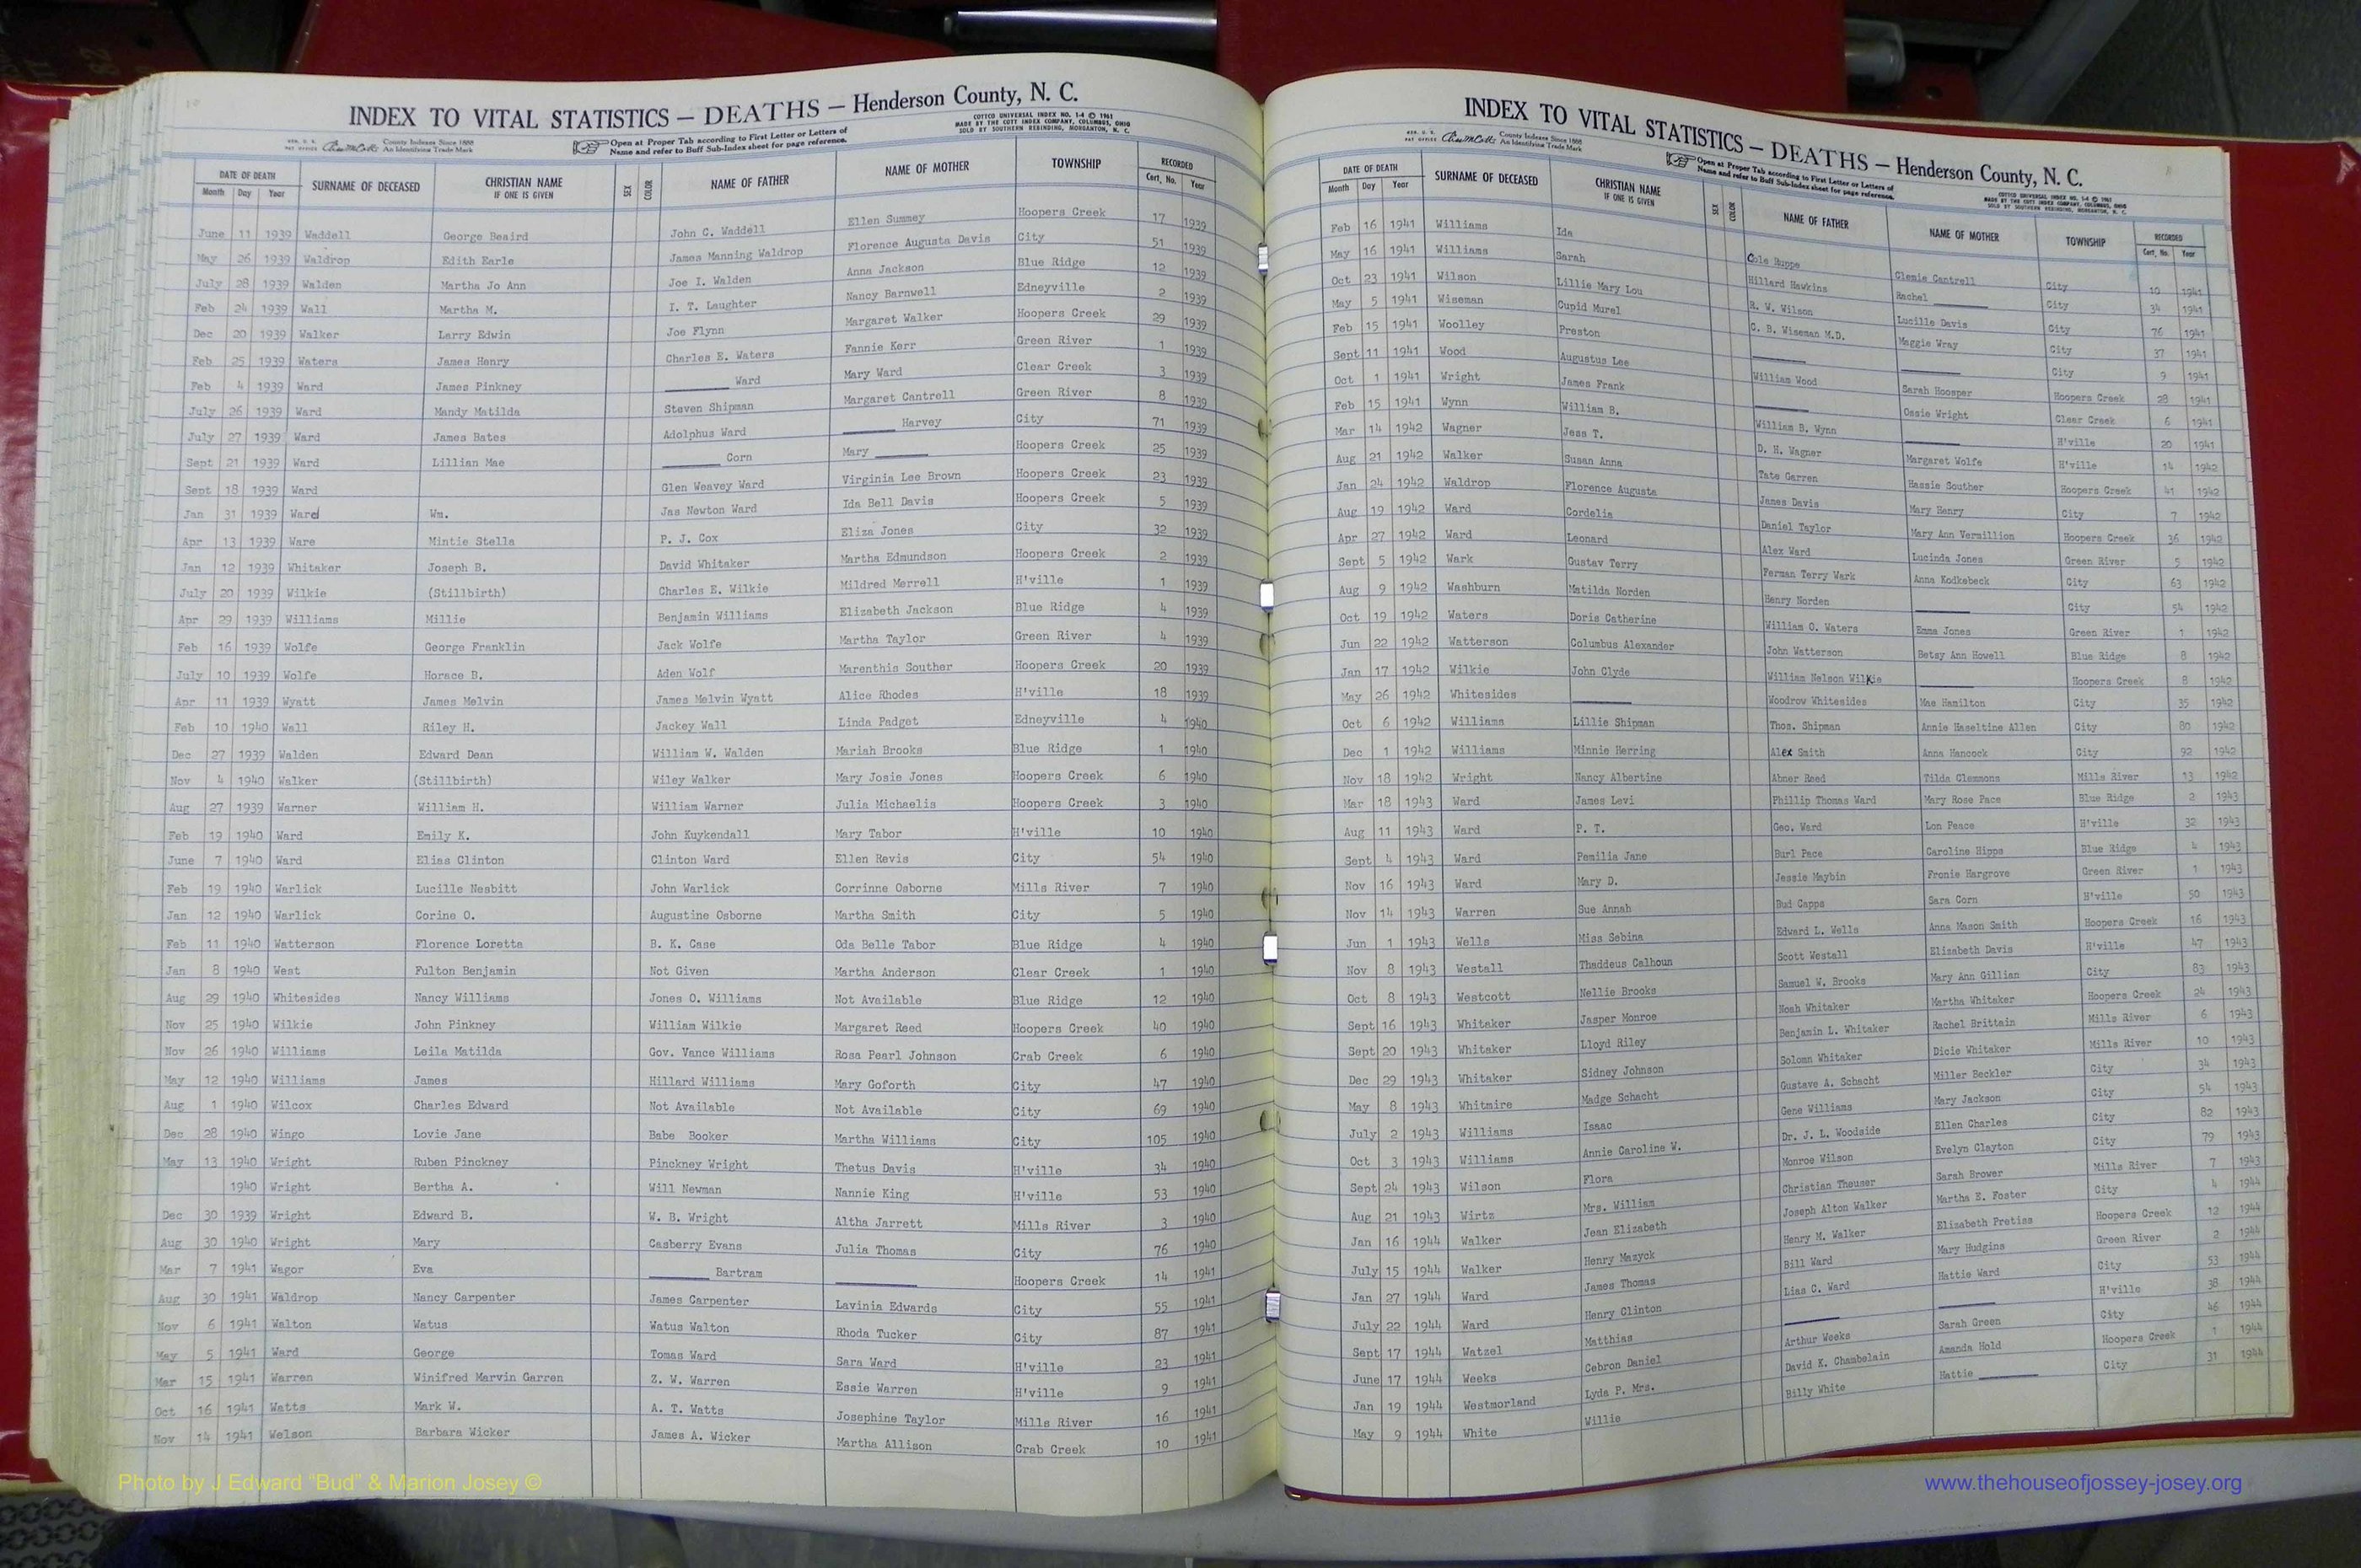 INDEX TO VITAL STATISTICS — DEATHS — Henderson County, N. C.
COTTCO UNIVERSAL INDEX NO. 1-4 © 1961
MADE BY THE COTT INDEX COMPANY, COLUMBUS, OHIO
SOLD BY SOUTHERN REBINDING, MORGANTON, N. C.
County Indexes Since 1888
An Identifying Trade Mark
Open at Proper Tab according to First Letter or Letters of
Name and refer to Buff Sub-Index sheet for page reference.
DATE OF DEATH SURNAME OF DECEASED CHRISTIAN NAME IF ONE IS GIVEN SEX COLOR NAME OF FATHER NAME OF MOTHER TOWNSHIP RECORDED
Month Day Year Cert. No. Year
June 11 1939 Waddell George Beaird John C. Waddell Ellen Summey Hoopers Creek 17 1939
May 26 1939 Waldrop Edith Earle James Manning Waldrop Florence Augusta Davis City 51 1939
July 28 1939 Walden Martha Jo Ann Joe I. Walden Anna Jackson Blue Ridge 12 1939
Feb 24 1939 Wall Martha M. I. T. Laughter Nancy Barnwell Edneyville 2 1939
Dec 20 1939 Walker Larry Edwin Joe Flynn Margaret Walker Hoopers Creek 29 1939
Feb 25 1939 Waters James Henry Charles E. Waters Fannie Kerr Green River 1 1939
Feb 4 1939 Ward James Pinkney Ward Mary Ward Clear Creek 3 1939
July 26 1939 Ward Mandy Matilda Steven Shipman Margaret Cantrell Green River 8 1939
July 27 1939 Ward James Bates Adolphus Ward Harvey City 71 1939
Sept 21 1939 Ward Lillian Mae Corn Mary Hoopers Creek 25 1939
Sept 18 1939 Ward Glen Weavey Ward Virginia Lee Brown Hoopers Creek 23 1939
Jan 31 1939 Ward Wm. Jas Newton Ward Ida Bell Davis Hoopers Creek 5 1939
Apr 13 1939 Ware Mintie Stella P. J. Cox Eliza Jones City 32 1939
Jan 12 1939 Whitaker Joseph B. David Whitaker Martha Edmundson Hoopers Creek 2 1939
July 20 1939 Wilkie (Stillbirth) Charles E. Wilkie Mildred Merrell H'ville 1 1939
Apr 29 1939 Williams Millie Benjamin Williams Elizabeth Jackson Blue Ridge 4 1939
Feb 16 1939 Wolfe George Franklin Jack Wolfe Martha Taylor Green River 4 1939
July 10 1939 Wolfe Horace B. Aden Wolf Marenthis Souther Hoopers Creek 20 1939
Apr 11 1939 Wyatt James Melvin James Melvin Wyatt Alice Rhodes H'ville 18 1939
Feb 10 1940 Wall Riley H. Jackey Wall Linda Padget Edneyville 4 1940
Dec 27 1939 Walden Edward Dean William W. Walden Mariah Brooks Blue Ridge 1 1940
Nov 4 1940 Walker (Stillbirth) Wiley Walker Mary Josie Jones Hoopers Creek 6 1940
Aug 27 1939 Warner William H. William Warner Julia Michaelis Hoopers Creek 3 1940
Feb 19 1940 Ward Emily K. John Kuykendall Mary Tabor H'ville 10 1940
June 7 1940 Ward Elias Clinton Clinton Ward Ellen Revis City 54 1940
Feb 19 1940 Warlick Lucille Nesbitt John Warlick Corrinne Osborne Mills River 7 1940
Jan 12 1940 Warlick Corine O. Augustine Osborne Martha Smith City 5 1940
Feb 11 1940 Watterson Florence Loretta B. K. Case Oda Belle Tabor Blue Ridge 4 1940
Jan 8 1940 West Fulton Benjamin Not Given Martha Anderson Clear Creek 1 1940
Aug 29 1940 Whitesides Nancy Williams Jones O. Williams Not Available Blue Ridge 12 1940
Nov 25 1940 Wilkie John Pinkney William Wilkie Margaret Reed Hoopers Creek 40 1940
Nov 26 1940 Williams Leila Matilda Gov. Vance Williams Rosa Pearl Johnson Crab Creek 6 1940
May 12 1940 Williams James Hillard Williams Mary Goforth City 47 1940
Aug 1 1940 Wilcox Charles Edward Not Available Not Available City 69 1940
Dec 28 1940 Wingo Lovie Jane Babe Booker Martha Williams City 105 1940
May 13 1940 Wright Ruben Pinckney Pinckney Wright Thetus Davis H'ville 34 1940
1940 Wright Bertha A. Will Newman Nannie King H'ville 53 1940
Dec 30 1939 Wright Edward B. W. B. Wright Altha Jarrett Mills River 3 1940
Aug 30 1940 Wright Mary Casberry Evans Julia Thomas City 76 1940
Mar 7 1941 Wagor Eva Bartram Hoopers Creek 14 1941
Aug 30 1941 Waldrop Nancy Carpenter James Carpenter Lavinia Edwards City 55 1941
Nov 6 1941 Walton Watus Watus Walton Rhoda Tucker City 87 1941
May 5 1941 Ward George Tomas Ward Sara Ward H'ville 23 1941
Mar 15 1941 Warren Winifred Marvin Garren Z. W. Warren Essie Warren H'ville 9 1941
Oct 16 1941 Watts Mark W. A. T. Watts Josephine Taylor Mills River 16 1941
Nov 14 1941 Welson Barbara Wicker James A. Wicker Martha Allison Crab Creek 10 1941
INDEX TO VITAL STATISTICS — DEATHS — Henderson County, N. C.
County Indexes Since 1888
An Identifying Trade Mark
Open at Proper Tab according to First Letter or Letters of
Name and refer to Buff Sub-Index sheet for page reference.
COTTCO UNIVERSAL INDEX NO. 1-4 © 1961
MADE BY THE COTT INDEX COMPANY, COLUMBUS, OHIO
SOLD BY SOUTHERN REBINDING, MORGANTON, N. C.
DATE OF DEATH SURNAME OF DECEASED CHRISTIAN NAME IF ONE IS GIVEN SEX COLOR NAME OF FATHER NAME OF MOTHER TOWNSHIP RECORDED
Month Day Year Cert. No. Year
Feb 16 1941 Williams Ida Cole Huppe Clemie Cantrell City 10 1941
May 16 1941 Williams Sarah Hillard Hawkins Rachel City 34 1941
Oct 23 1941 Wilson Lillie Mary Lou R. W. Wilson Lucille Davis City 76 1941
May 5 1941 Wiseman Cupid Murel C. B. Wiseman M.D. Maggie Wray City 37 1941
Feb 15 1941 Woolley Preston City 9 1941
Sept 11 1941 Wood Augustus Lee William Wood Sarah Hoosper Hoopers Creek 28 1941
Oct 1 1941 Wright James Frank Ossie Wright Clear Creek 6 1941
Feb 15 1941 Wynn William B. William B. Wynn H'ville 20 1941
Mar 14 1942 Wagner Jess T. D. H. Wagner Margaret Wolfe H'ville 14 1942
Aug 21 1942 Walker Susan Anna Tate Garren Hassie Souther Hoopers Creek 41 1942
Jan 24 1942 Waldrop Florence Augusta James Davis Mary Henry City 7 1942
Aug 19 1942 Ward Cordelia Daniel Taylor Mary Ann Vermillion Hoopers Creek 36 1942
Apr 27 1942 Ward Leonard Alex Ward Lucinda Jones Green River 5 1942
Sept 5 1942 Wark Gustav Terry Ferman Terry Wark Anna Kodkebeck City 63 1942
Aug 9 1942 Washburn Matilda Norden Henry Norden City 54 1942
Oct 19 1942 Waters Doris Catherine William O. Waters Emma Jones Green River 1 1942
Jun 22 1942 Watterson Columbus Alexander John Watterson Betsy Ann Howell Blue Ridge 8 1942
Jan 17 1942 Wilkie John Clyde William Nelson Wilkie Hoopers Creek 8 1942
May 26 1942 Whitesides Woodrow Whitesides Mae Hamilton City 35 1942
Oct 6 1942 Williams Lillie Shipman Thos. Shipman Annie Haseltine Allen City 80 1942
Dec 1 1942 Williams Minnie Herring Alex Smith Anna Hancock City 92 1942
Nov 18 1942 Wright Nancy Albertine Abner Reed Tilda Clemmons Mills River 13 1942
Mar 18 1943 Ward James Levi Phillip Thomas Ward Mary Rose Pace Blue Ridge 2 1943
Aug 11 1943 Ward P. T. Geo. Ward Lon Peace H'ville 32 1943
Sept 4 1943 Ward Pamilia Jane Burl Pace Caroline Hipps Blue Ridge 4 1943
Nov 16 1943 Ward Mary D. Jessie Maybin Fronie Hargrove Green River 1 1943
Nov 14 1943 Warren Sue Annah Bud Capps Sara Corn H'ville 50 1943
Jun 1 1943 Wells Miss Sebina Edward L. Wells Anna Mason Smith Hoopers Creek 16 1943
Nov 8 1943 Westall Thaddeus Calhoun Scott Westall Elizabeth Davis H'ville 47 1943
Oct 8 1943 Westcott Nellie Brooks Samuel W. Brooks Mary Ann Gillian City 83 1943
Sept 16 1943 Whitaker Jasper Monroe Noah Whitaker Martha Whitaker Hoopers Creek 24 1943
Sept 20 1943 Whitaker Lloyd Riley Benjamin L. Whitaker Rachel Brittain Mills River 6 1943
Dec 29 1943 Whitaker Sidney Johnson Solomn Whitaker Dicie Whitaker Mills River 10 1943
May 8 1943 Whitmire Madge Schacht Gustave A. Schacht Miller Beckler City 34 1943
July 2 1943 Williams Isaac Gene Williams Mary Jackson City 54 1943
Oct 3 1943 Williams Annie Caroline W. Dr. J. L. Woodside Ellen Charles City 82 1943
Sept 24 1943 Wilson Flora Monroe Wilson Evelyn Clayton City 79 1943
Aug 21 1943 Wirtz Mrs. William Christian Theuner Sarah Brower Mills River 7 1943
Jan 16 1944 Walker Jean Elizabeth Joseph Alton Walker Martha E. Foster City 4 1944
July 15 1944 Walker Henry Mazyck Henry M. Walker Elizabeth Pretiss Hoopers Creek 12 1944
Jan 27 1944 Ward James Thomas Bill Ward Mary Hudgins Green River 2 1944
July 22 1944 Ward Henry Clinton Lias C. Ward Hattie Ward City 53 1944
Sept 17 1944 Watzel Matthias H'ville 38 1944
June 17 1944 Weeks Cebron Daniel Arthur Weeks Sarah Green City 46 1944
Jan 19 1944 Westmorland Lyda P. Mrs. David K. Chambelain Amanda Hold Hoopers Creek 1 1944
May 9 1944 White Willie Billy White Hattie City 31 1944
Photo by J Edward “Bud” & Marion Josey ©
www.thehouseofjossey-josey.org